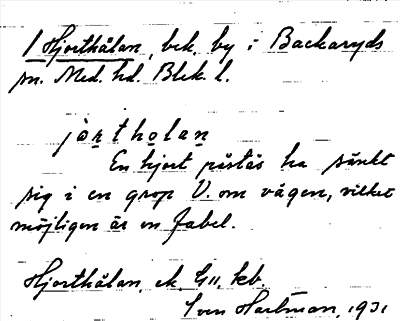 1 Hjorthålan, bek. by i Backaryds
sn. Med. hd. Blek. l.
jo̱ṟtho̱laṉ
En hjort påstås ha sänkt
sig i en grop V. om vägen, vilket
möjligen är en fabel.
Hjorthålan, ek. G11, kb.
Sven Hartman, 1931